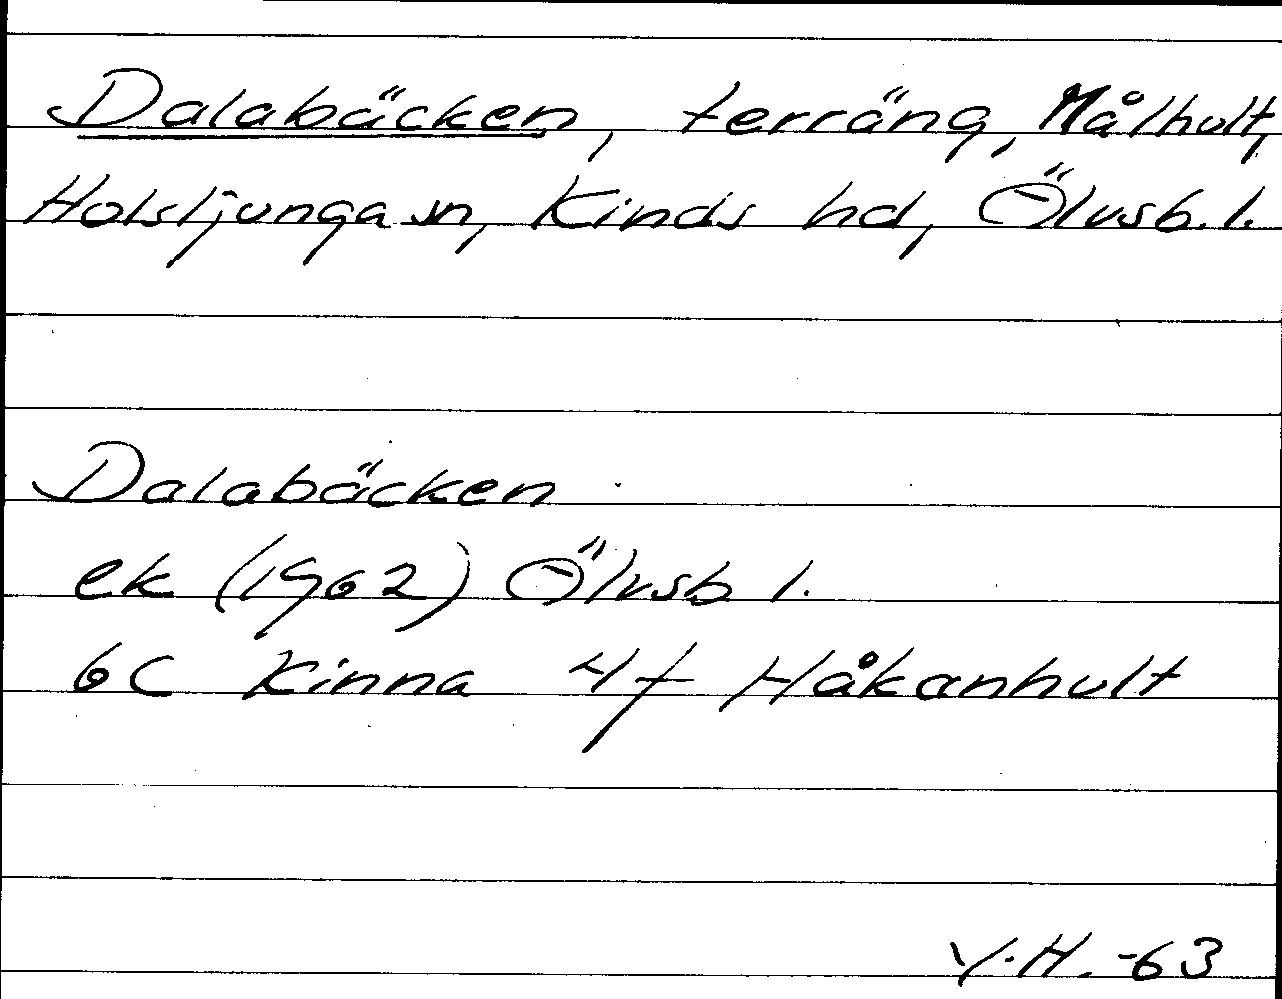 Dalabäcken, terräng, Målhult,
Holsljunga sn, Kinds hd, Älvsb. l.
Dalabäcken
ek (1962) Älvsb l.
6C Kinna 4f Håkanhult
V.H. -63